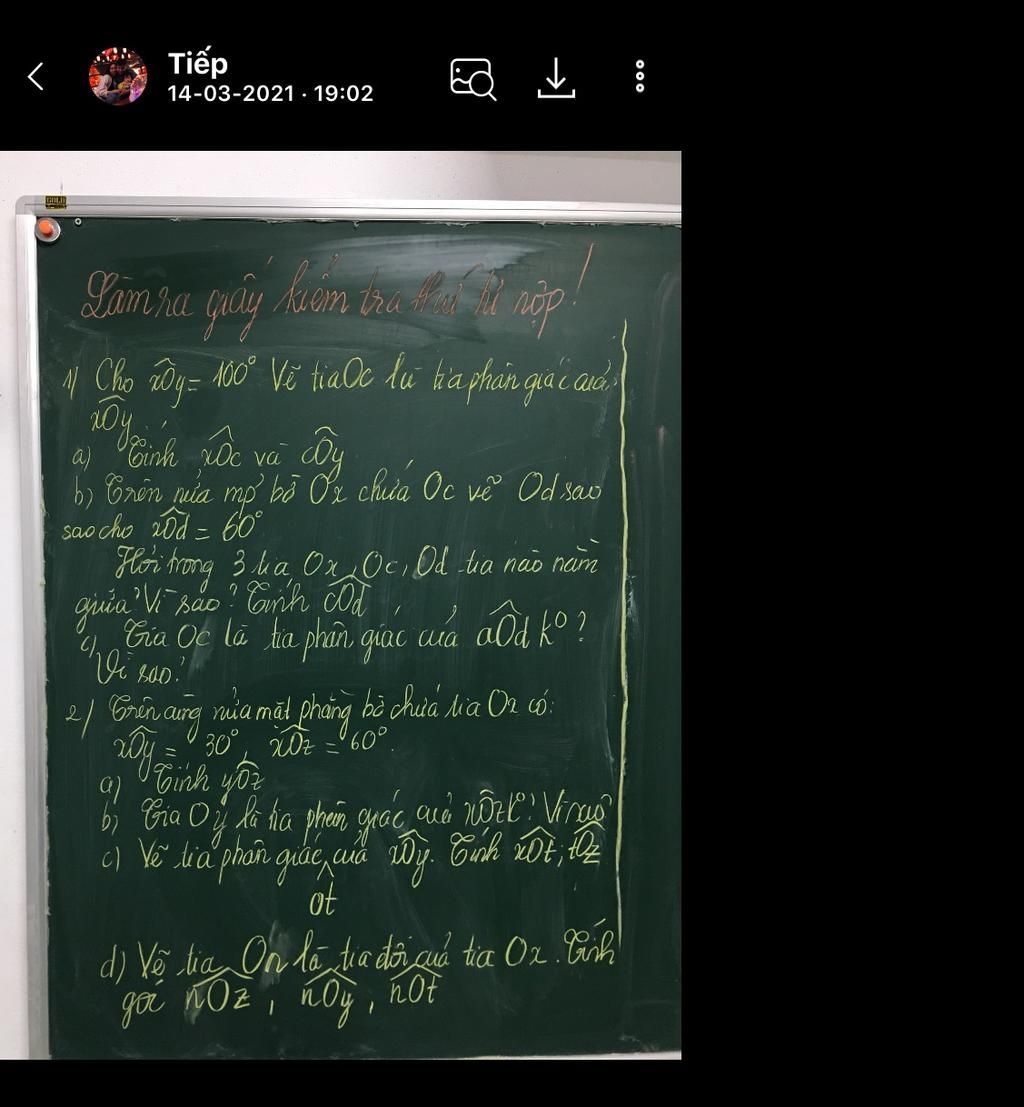 Tiếp
14-03-2021 · 19:02
GOLD
Làm ra giấy kiểm tra thứ hi nộp!
1/ Cho xOy = 100° Vẽ tia Oc là tia phân giác của
xOy
a) Tính xOc và cOy
b) Trên nửa mp bờ Ox chứa Oc vẽ Od sao
sao cho xOd = 60°
Hỏi trong 3 tia Ox, Oc, Od tia nào nằm
giữa? Vì sao? Tính cOd
c) Tia Oc là tia phân giác của aOd k°?
Vì sao?
2/ Trên cùng nửa mặt phẳng bờ chứa tia Ox có:
xOy = 30°, xOz = 60°.
a) Tính yOz
b) Tia Oy là tia phân giác của xOz k°? Vì sao?
c) Vẽ tia phân giác của xOy. Tính xOt; tOz
Ot
d) Vẽ tia On là tia đối của tia Ox. Tính
góc nOz, nOy, nOt